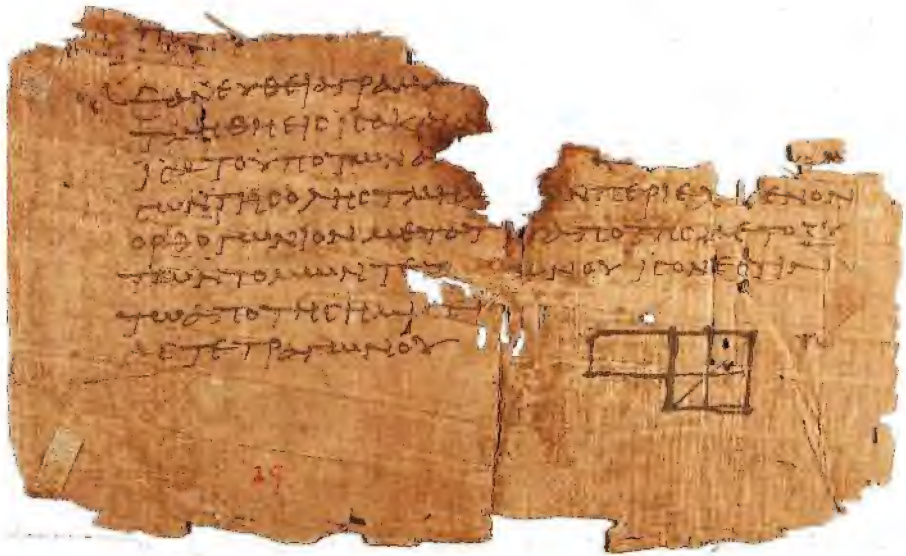 ΕΑΝΕΥΘΕΙΑΓΡΑΜ
ΤΜΗΘΗΕΙCΙCΑΚ
ΙCΑΤΟΥΠΟΤΩΝΑ
CΩΝΤΗCΟΛΗCΤΜΗ ΝΠΕΡΙΕΧ ΕΝΟΝ
ΟΡΘΟΓΩΝΙΟΝΜΕΤΟΤ ΑΠΟΤΗCΜΕΤΟΞΥ
ΤΩΝΤΟΜΩΝΤΕΤ ΩΝΟΥΙCΟΝΕCΤΙΝ
ΤΩΑΠΟΤΗCΗΜΙ
ΑCΤΕΤΡΑΓΩΝΟΥ
29